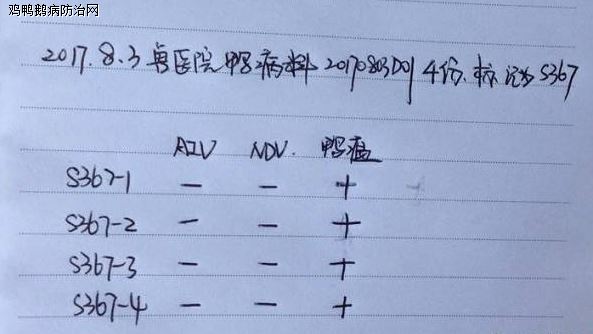 鸡鸭鹅病防治网
2017.8.3 兽医院 鸭病料 20170803D01 4份、标记为 S367
AIV NDV. 鸭瘟
S367-1 — — +
S367-2 — — +
S367-3 — — +
S367-4 — — +